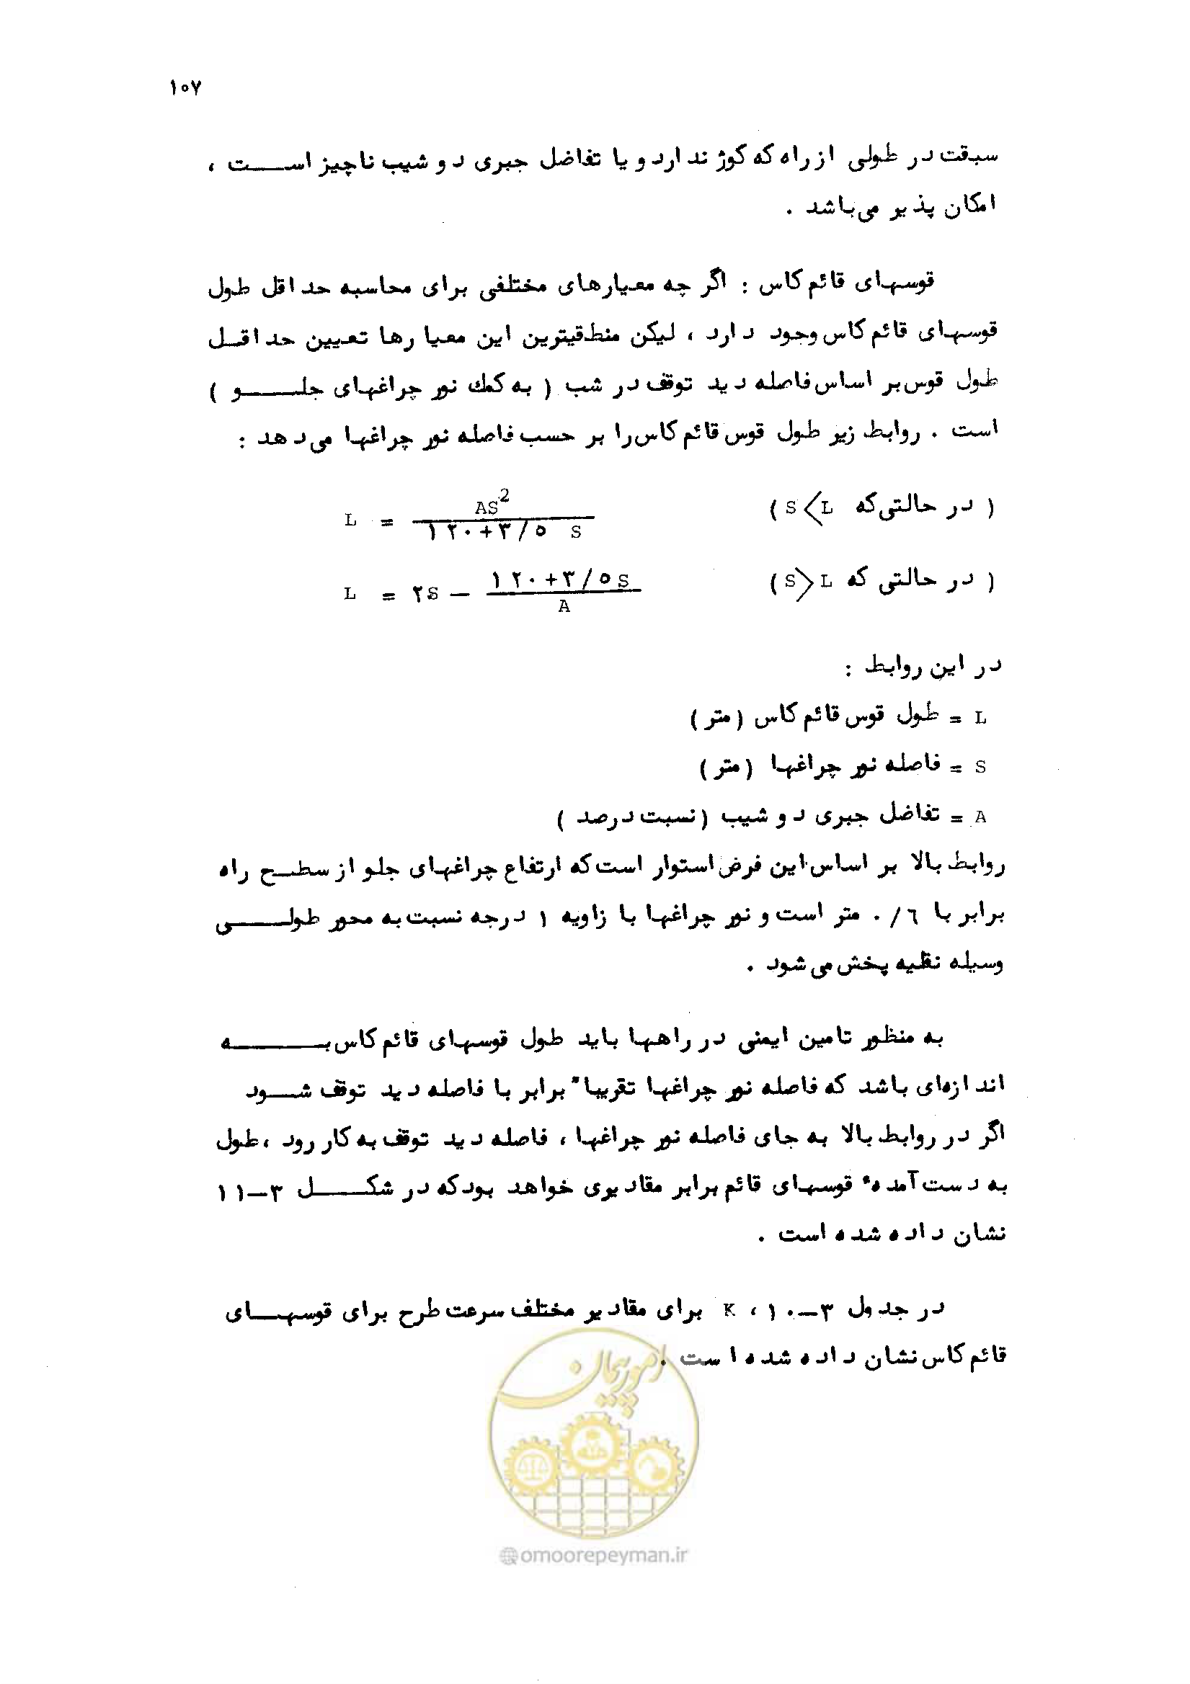 ۱۰۷
سبقت در طولی از راه که کوژ ندارد و یا تفاضل جبری دو شیب ناچیز است ،
امکان پذیر می‌باشد .
قوسهای قائم کاس : اگر چه معیارهای مختلفی برای محاسبه حداقل طول
قوسهای قائم کاس وجود دارد ، لیکن منطقیترین این معیارها تعیین حداقل
طول قوس بر اساس فاصله دید توقف در شب ( به کمك نور چراغهای جلو )
است . روابط زیر طول قوس قائم کاس را بر حسب فاصله نور چراغها می‌دهد :
( در حالتی‌که S < L ) L = AS² / (۱۲۰+۳/۵ S)
( در حالتی که S > L ) L = ۲S − (۱۲۰+۳/۵S) / A
در این روابط :
L = طول قوس قائم کاس (متر)
S = فاصله نور چراغها (متر)
A = تفاضل جبری دو شیب (نسبت درصد )
روابط بالا بر اساس این فرض استوار است که ارتفاع چراغهای جلو از سطح راه
برابر با ۰/۶ متر است و نور چراغها با زاویه ۱ درجه نسبت به محور طولی
وسیله نقلیه پخش می‌شود .
به منظور تامین ایمنی در راهها باید طول قوسهای قائم کاس به
اندازه‌ای باشد که فاصله نور چراغها تقریبا" برابر با فاصله دید توقف شود
اگر در روابط بالا به جای فاصله نور چراغها ، فاصله دید توقف به کار رود ، طول
به دست آمدهٔ قوسهای قائم برابر مقادیری خواهد بود که در شکل ۳-۱۱
نشان داده شده است .
در جدول ۳-۱۰ ، K برای مقادیر مختلف سرعت طرح برای قوسهای
قائم کاس نشان داده شده است .
امور پیمان
@omoorepeyman.ir